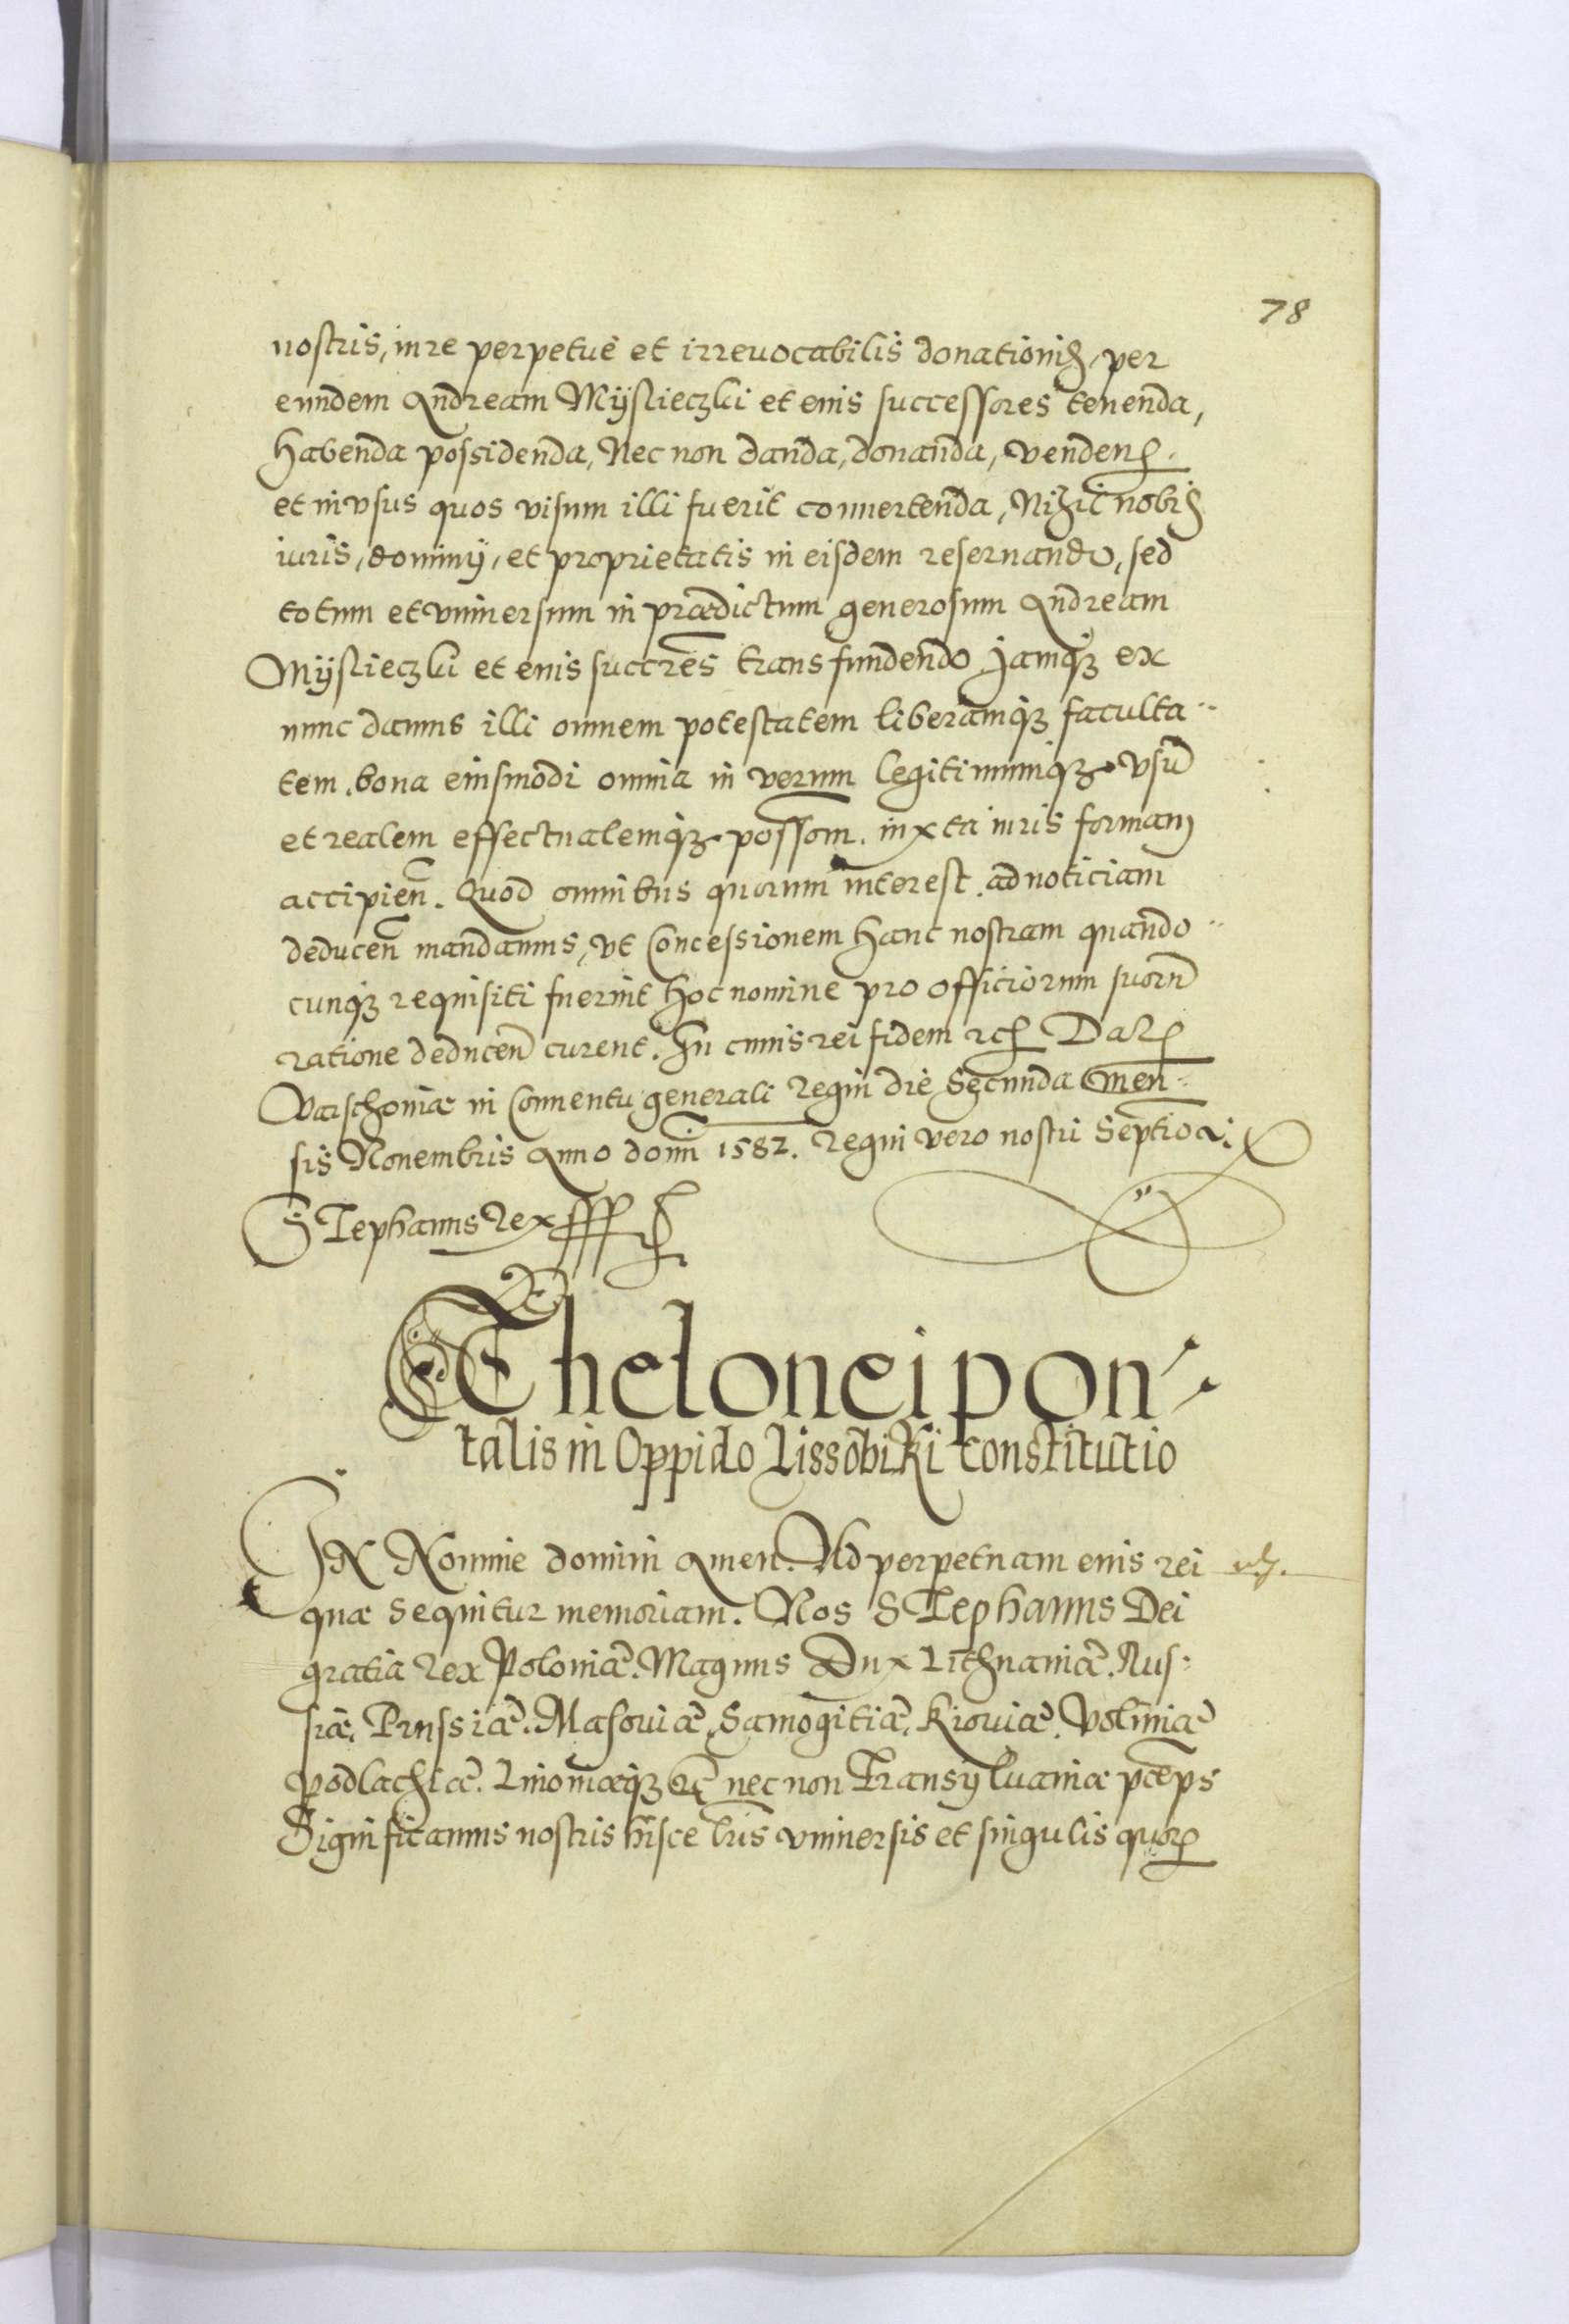 78
nostris, iure perpetuè et irreuocabilis donationis, per
eundem Andream Mÿslieczki et eius successores tenenda,
habenda possidenda, Nec non danda, donanda, venden.
et in vsus quos visum illi fuerit conuertenda, Nihil nobis
iuris, dominÿ, et proprietatis in eisdem reseruando, sed
totum et vniuersum in prædictum generosum Andream
Mÿslieczki et eius succres̄ transfundendo Jamq₃ ex
nunc damus illi omnem potestatem liberamq₃ faculta..
tem, bona eiusmodi omnia in verum legitimumq₃ vsū
et realem effectualemq₃ possom. iuxta iuris formam
accipien̄. Quod omnibus quorum interest, ad noticiam
deducen̄ mandamus, vt Concessionem hanc nostram quando..
cunq₃ requisiti fuerint hoc nomine pro officiorum suorū
ratione deducen̄ curent. In cuius rei fidem etc. Dat.
Varschouiæ in Conuentu generali Regni die Secunda Men:
sis Nouembris Anno domi 1582. Regni vero nostri Septio
Stephanus Rex
Thelonei pon
talis in Oppido Lissobiki constitutio
IN Nomine domini Amen. Ad perpetuam eius rei
quæ sequitur memoriam. Nos Stephanus Dei
gratia Rex Poloniæ. Magnus Dux Lithuaniæ. Rus:
siæ. Prussiæ. Masouiæ, Samogitiæ, Kiouiæ. Voliniæ
Podlachiæ. Liuoniæq₃ etc nec non Transÿluaniæ pceps
Significamus nostris hisce lris vniuersis et singulis quor.